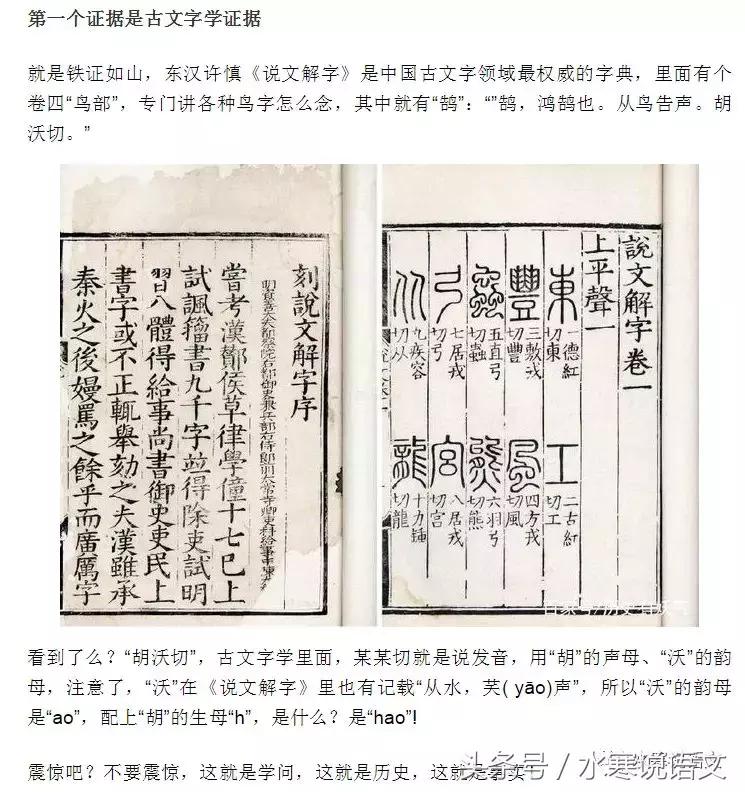 第一个证据是古文字学证据
就是铁证如山，东汉许慎《说文解字》是中国古文字领域最权威的字典，里面有个
卷四“鸟部”，专门讲各种鸟字怎么念，其中就有“鹄”：“”鹄，鸿鹄也。从鸟告声。胡
沃切。”
刻說文解字序
嘗考漢鄭侯草律學僮十七已上
試諷籀書九千字並得除吏試明
習八體得給事尚書御史吏民上
書字或不正輒舉劾之夫漢雖承
秦火之後嫚罵之餘乎而廣厲字
說文解字卷一
上平聲一
東 一德紅切東 工 二古紅切工
豐 三敷戎切豐 風 四方戎切風
蟲 五直弓切蟲 熊 六羽弓切熊
弓 七居戎切弓 宮 八居戎切宮
从 九疾容切从 龍 十力鍾切龍
看到了么？“胡沃切”，古文字学里面，某某切就是说发音，用“胡”的声母、“沃”的韵
母，注意了，“沃”在《说文解字》里也有记载“从水，芺( yāo)声”，所以“沃”的韵母
是“ao”，配上“胡”的生母“h”，是什么？是“hao”!
震惊吧？不要震惊，这就是学问，这就是历史，这就是
头条号 / 水寒说语文